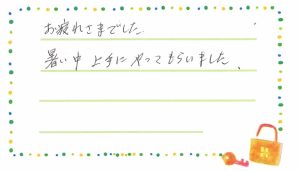 お疲れさまでした
暑い中上手にやってもらいました、